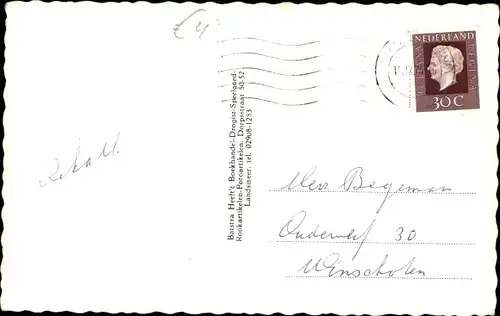 € 4
NEDERLAND
JULIANA REGINA
30 C
Batstra Heeft't Boekhandel-Drogist-Speelgoed-
Rookartikelen-Fotoartikelen. Dorpsstraat 50-52
Landsmeer. tel. 02908-1253
Mevr Begeman
Ouderwerf 30
Winschoten